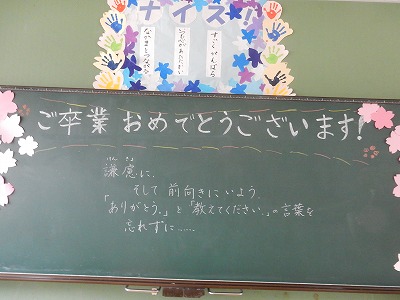 ナイス!!
なかまとつながる
すごくがんばる
ご卒業 おめでとうございます!
けん きょ
謙虚に、
そして 前向きにいよう。
「ありがとう。」と「教えてください。」の言葉を
忘れずに……